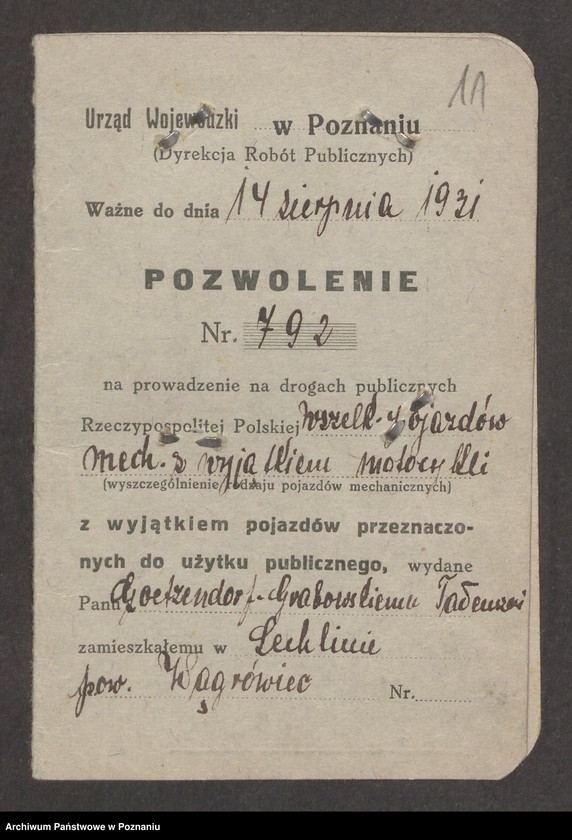 11
Urząd Wojewódzki w Poznaniu
(Dyrekcja Robót Publicznych)
Ważne do dnia 14 sierpnia 1931
POZWOLENIE
Nr. 792
na prowadzenie na drogach publicznych
Rzeczypospolitej Polskiej wszelk. pojazdów
mech. z wyjątkiem motocykli
(wyszczególnienie rodzaju pojazdów mechanicznych)
z wyjątkiem pojazdów przeznaczo-
nych do użytku publicznego, wydane
Panu Goetzendorf-Grabowskiemu Tadeuszowi
zamieszkałemu w Lechlinie
pow. Wągrówiec Nr.
Archiwum Państwowe w Poznaniu